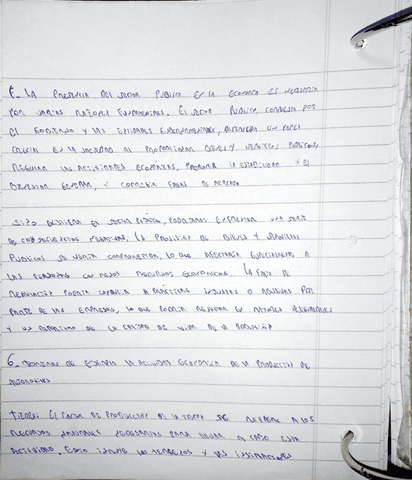 5. LA PRESENCIA DEL SECTOR PUBLICO EN LA ECONOMIA ES NECESARIA
POR VARIAS RAZONES FUNDAMENTALES. EL SECTOR PUBLICO, COMPUESTO POR
EL GOBIERNO Y LAS ENTIDADES GUBERNAMENTALES, DESEMPEÑA UN PAPEL
CRUCIAL EN LA SOCIEDAD AL PROPORCIONAR BIENES Y SERVICIOS PUBLICOS,
REGULAR LAS ACTIVIDADES ECONÓMICAS, PROMOVER LA ESTABILIDAD Y EL
BIENESTAR GENERAL, Y CORREGIR FALLAS DE MERCADO
SI NO EXISTIERA EL SECTOR PÚBLICO, PODRIAMOS EXPERIMENTAR UNA SERIE
DE CONSECUENCIAS NEGATIVAS. LA PROVISION DE BIENES Y SERVICIOS
PUBLICOS SE VERIA COMPROMETIDA, LO QUE AFECTARIA ESPECIALMENTE A
LAS PERSONAS CON BAJOS RECURSOS ECONOMICOS. LA FALTA DE
REGULACION PODRIA CONDUCIR A PRÁCTICAS INJUSTAS O ABUSIVAS POR
PARTE DE LAS EMPRESAS, LO QUE PODRIA RESULTAR EN
Y UN DETERIORO DE LA CALIDAD DE VIDA DE LA POBLACIÓN
6. TOMEMOS DE EJEMPLO LA ACTIVIDAD ECONOMICA DE LA PRODUCCION DE
AUTOMOVILES
TIERRA: EL FACTOR DE PRODUCCION DE LA TIERRA SE REFIERE A LOS
RECURSOS NATURALES NECESARIOS PARA LLEVAR A CABO ESTA
ACTIVIDAD. ESTO INCLUYE LOS TERRENOS Y LAS INSTALACIONES